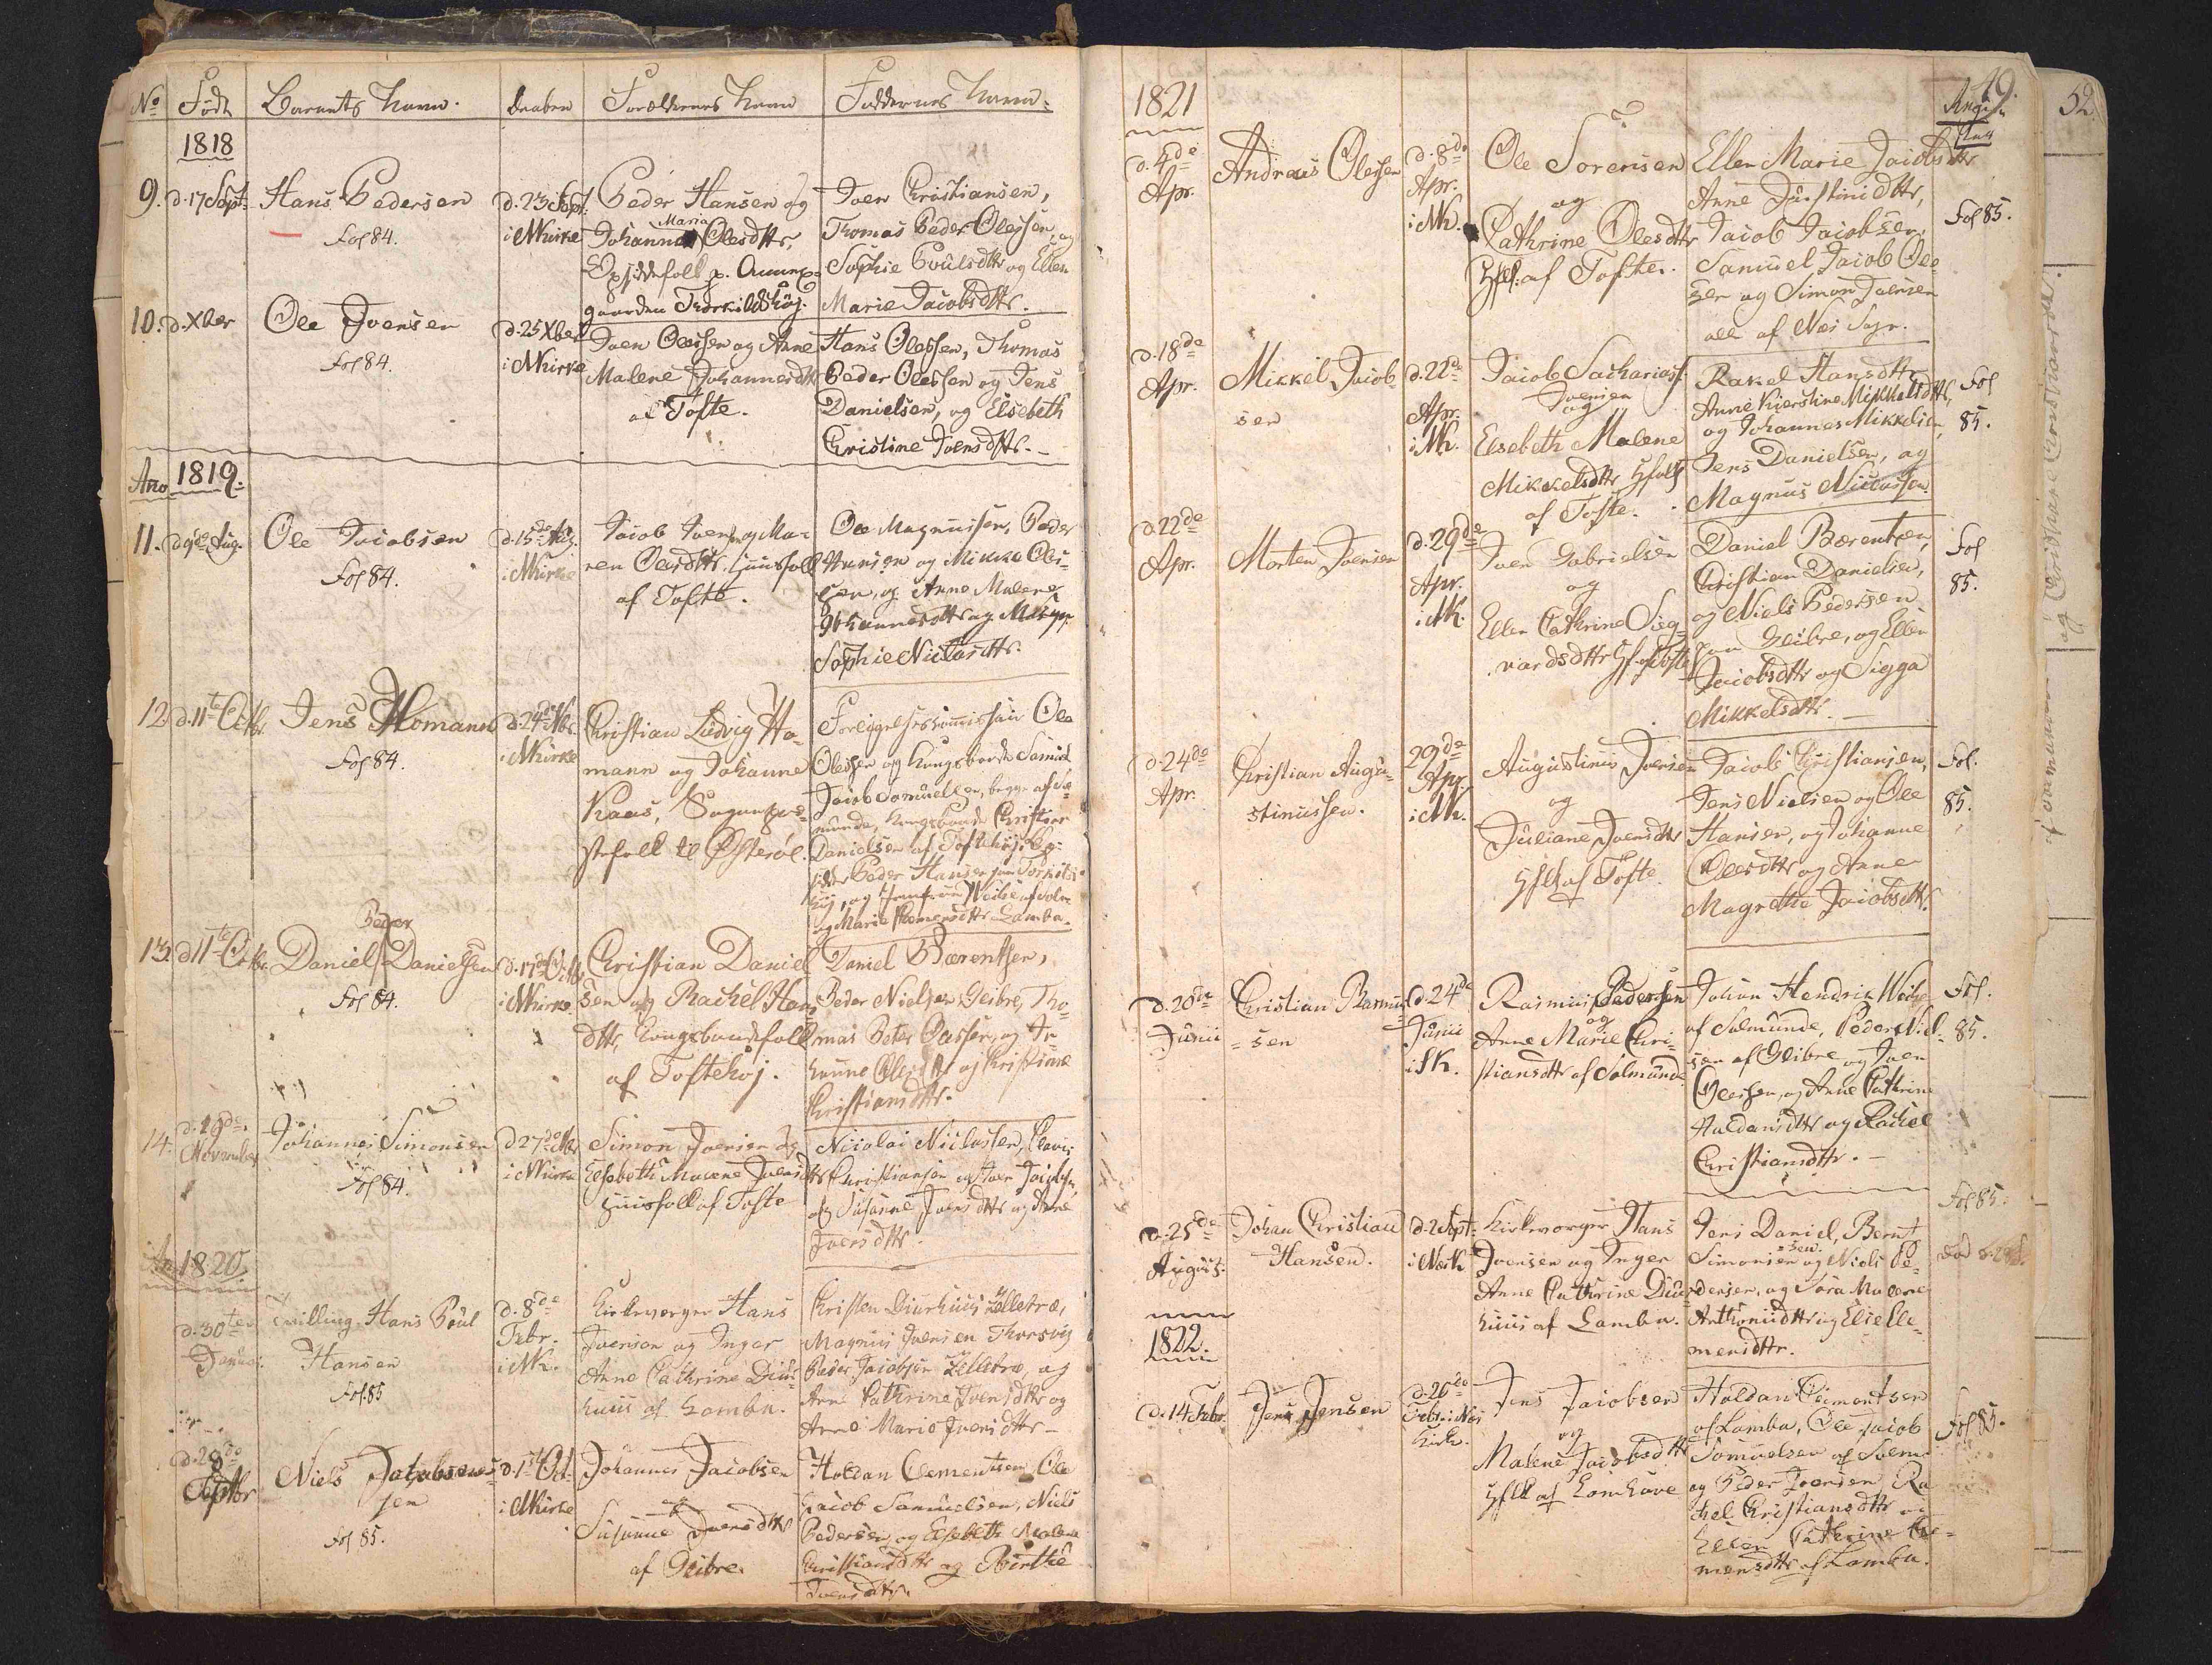 No Født Barnets Navn. Døben Forældrenes Navn Faddernes Navn:
1818
9. d. 17 Sept. Hans Pedersen
Fol 84.
d. 23 Sept.
i NKirke
Peder Hansen og
Maria
Johanna Olesdttr,
Opsidderfolk p. Annexgaarden Torkildshöj.
Joen Christiansen,
Thomas Peder Olessen, og
Sophie Poulsdttr og Ellen
Marie Jacobsdttr.
10. d. Xber Ole Joensen
Fol 84.
d. 25 Xber
i NKirke
Joen Olessen og Anne
Malene Johannesdttr
af Tofte.
Hans Olessen, Thomas
Peder Olessen og Jens
Danielsen, og Elsebeth
Christine Joensdttr.
Ano 1819.
11. d. 9de Aug. Ole Jacobsen
Fol 84.
d. 15de Aug.
i NKirke
Jacob Joensen og Maren
Olesdttr. Huusfolk
af Tofte.
Ole Magnussen, Peder
Hansen og Mikkel Olessen,
og Anne Malene
Johannesdttr og
Sophie Niclasdttr.
12. d. 11te Octbr. Jens Homann
Fol 84.
d. 24de
i NKirke
Christian Ludvig Homann
og Johanne
Kaas, Sognepræstefolk
til Østerøe.
Forligelsescommissair Ole
Olessen og Kongsbonde Samuel
Jacob Samuelsen, begge af
Kongsbonde Christian
Danielsen af Toftehöj,
Peder Hansen paa Torkildshöj,
og Jomfrue Weihe af Solm.
og Marie Clemensdttr Lamba.
13. d. 11te Octbr.
Peder
Daniel Danielsen
Fol 84.
d. 17de Octbr.
i NKirke
Christian Danielsen
og Rachel Hansdttr,
Kongsbondefolk
af Toftehöj.
Daniel Bærentsen,
Peder Nielsen Glibre, Thomas
Peter Olessen, og Johanne
Olesdttr og Christiane
Christiansdttr.
14. d. 18de
November
Johannes Simonsen
Fol 84.
d. 27de Nbr
i NKirke
Simon Joensen og
Elsebeth Malene Joensdttr
Huusfolk af Tofte
Nicolai Niclassen,
Christiansen og Joen Jacobsen,
og Susanne Joensdttr og Anne
Joensdttr.
An. 1820
d. 30te
Januar.
Tvilling Hans Poul
Hansen
Fol. 85
d. 8de
Febr.
i NK.
Kirkeværger Hans
Joensen og Inger
Anne Cathrine Diurhuus
af Lamba.
Christen Diurhuus Zelletræ,
Magnus Joensen Thorsvig
Peder Jacobsen Zelletræ, og
Anne Cathrine Joensdttr og
Anne Marie Joensdttr
d. 28de
Septbr
Niels
sen
Fol 85.
d. 1st Oct.
i NKirke
Johannes Jacobsen
og
Susanne Joensdttr
af Glibre.
Haldan Clementsen, Ole
Jacob Samuelsen, Niels
Pedersen, og Elsebeth Malene
Christiansdttr og Birthe
Joensdttr.
1821
49.
52
d. 4de
Apr.
Andreas Olessen
d. 8de
Apr.
i NK.
Ole Sorensen
og
Cathrine Olesdttr
Hflk. af Tofte.
Ellen Marie Jacobsdttr
Anne Justinidttr,
Jacob Jacobsen,
Samuel Jacob Olesen
og Simon Joensen
alle af Næs Sogn.
Fol 85.
d. 18de
Apr.
Mikkel Jacobsen
d. 22de
Apr.
i NK.
Jacob Sachariass.
Joensen
og
Elsebeth Malene
Mikkelsdttr Hfolk
af Tofte.
Rakel Hansdttr
Anne Kierstine Mikkelsdttr,
og Johannes Mikkelsen,
Jens Danielsen, og
Magnus Niclassen.
Fol
85.
d. 22de
Apr.
Morten Joensen
d. 29de
Apr.
i NK.
Joen Gabrielsen
og
Ellen Cathrine Siegvardsdttr
Hf. af Tofte
Daniel Bærentsen,
Christian Danielsen,
og Niels Pedersen
paa Glibre, og Ellen
Jacobsdttr og Sigga
Mikkelsdttr.
Fol
85.
d. 24de
Apr.
Christian Augustinussen.
29de
Apr.
i NK.
Augustinus Joensen
og
Juliane Joensdttr
Hflk af Tofte.
Jacob Christiansen,
Jens Nielsen og Ole
Hansen, og Johanne
Olesdttr og Anne
Magrethe Jacobsdttr.
Fol.
85.
d. 20de
Junii
Christian Rasmussen
d. 24de
Junii
i SK.
Rasmus Pedersen
og
Anne Marie Christiansdttr
af Solmunde.
Johan Hendrik Weihe
af Solmunde, Peder Nielsen
af Glibre og Joen
Olessen, og Anne Cathrine
Haldansdttr og Rachel
Christiansdttr.
Fol.
85.
d. 25de
August.
Johan Christian
Hansen.
d. 2 Sept.
i NæsK
Kirkeværger Hans
Joensen og Inger
Anne Cathrine Diurhuus
af Lamba.
Jens Daniel, Bernt
Simonsen og Niels Pedersen,
og Sara Malene
Anthoniidttr og Else Clemensdttr.
Fol 85.
1822.
d. 14 Febr. Jens Jensen
d. 20de
Febr. i Næs
Kirk.
Jens Jacobsen
og
Malene Jacobsdttr
Hflk af Lamhave
Haldan Clementsen
af Lamba, Ole Jacob
Samuelsen af Solm.
og Peder Joensen, Rachel
Christiansdttr og
Ellen Cathrine Clemensdttr
af Lamba.
Fol 85.